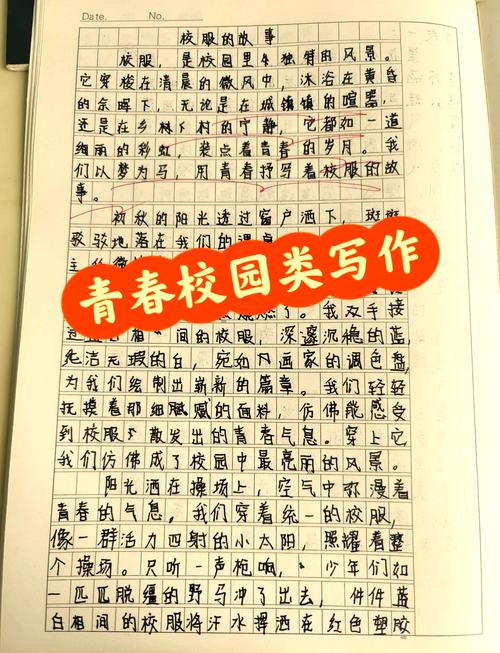 Date.
No.
校服的故事
校服,是校园里独特的风景。
它穿梭在清晨的微风中,沐浴在黄昏
的余晖下,无论是在城镇镇的喧嚣,
还是在乡林下村的宁静,它都如一道
绚丽的彩虹,装点着青春的岁月。我
们以梦为马,用青春抒写着校服的故
事。
初秋的阳光透过窗户洒下,斑斑
驳驳地落在我们的课桌
青春校园类写作
了。我双手接
间的校服,深邃沉稳的蓝,
纯洁无瑕的白,宛如画家的调色盘,
为我们绘制出崭新的篇章。我们轻轻
抚摸着那细腻的面料,仿佛能感受
到校服散发出的青春气息。穿上它
我们仿佛成了校园中最亮丽的风景。
阳光洒在操场上,空气中弥漫着
青春的气息。我们穿着统一的校服,
像一群活力四射的小太阳,照耀着整
个操场。只听一声枪响,少年们如
一匹匹脱缰的野马冲了出去,件件蓝
白相间的校服将汗水挥洒在红色塑胶